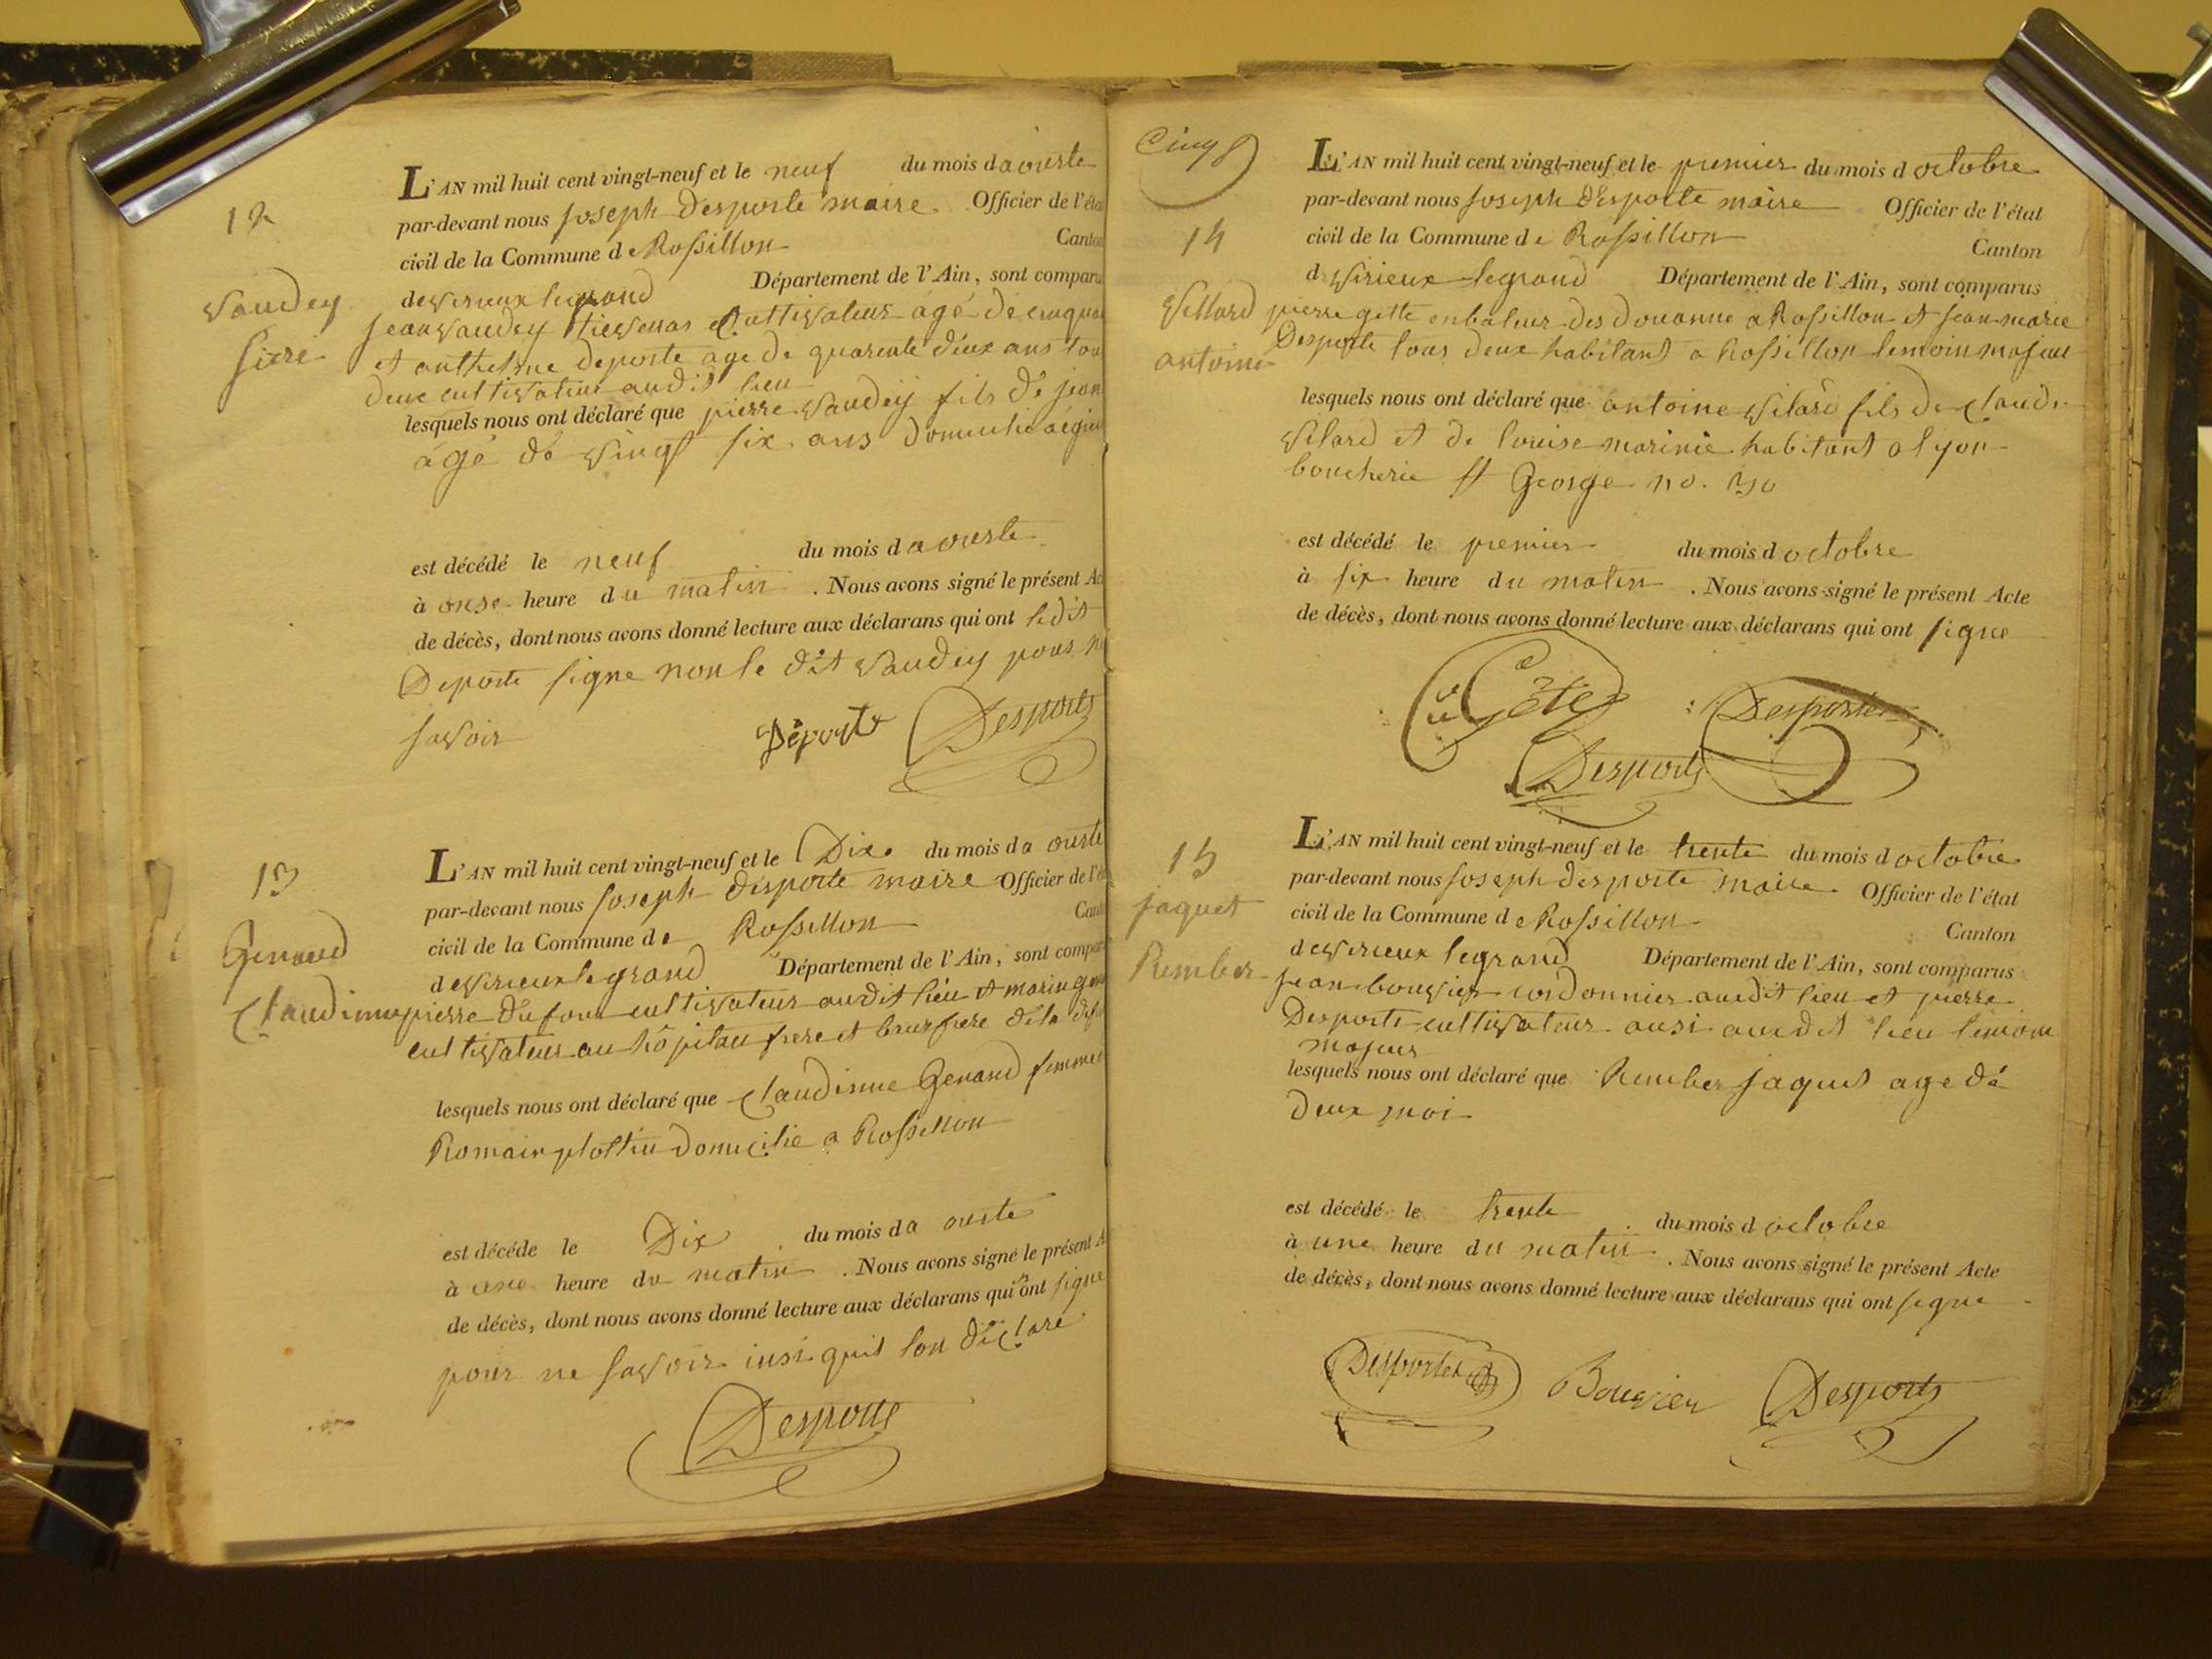 12
Vaudey
L'AN mil huit cent vingt-neuf et le neuf du mois d aouste
par-devant nous Joseph Desporte maire Officier de l'éta
civil de la Commune de Rossillon Canton
de Virieux legrand Département de l'Ain, sont comparu
jean Vaudey cultivateur agé de
et anthelme deporte age de quarente deux ans tou
deux cultivateur audit lieu
lesquels nous ont déclaré que pierre Vaudey fils de jean
agé de vingt six ans domicilié
est décédé le neuf du mois d aouste
à onse heure du matin . Nous avons signé le présent Ac
de décès, dont nous avons donné lecture aux déclarans qui ont ledit
Deporte signe non le dit Vaudey pour ne
savoir
Déporte Desporte
13
Genaud
Claudinne
L'AN mil huit cent vingt-neuf et le Dix du mois d a ouste
par-devant nous Joseph desporte maire Officier de l'é
civil de la Commune de Rossillon Cant
de Virieux legrand Département de l'Ain, sont compar
pierre Dufour cultivateur audit lieu et marin
cultivateur au hôpitau frere et beux frere de la
lesquels nous ont déclaré que Claudinne Genaud femme
Romain plottin domicilie a Rossillon
est décéde le Dix du mois d a ouste
à une heure du matin . Nous avons signé le présent A
de décès, dont nous avons donné lecture aux déclarans qui n'ont signe
pour ne savoir insi quil lon déclaré
Desporte
Cinq
14
Villard
antoine
L'AN mil huit cent vingt-neuf et le premier du mois d octobre
par-devant nous Joseph Desporte maire Officier de l'état
civil de la Commune de Rossillon Canton
d Virieux legrand Département de l'Ain, sont comparus
pierre gette enbaleur des douanne a Rossillon et jean marie
Desporte tous deux habitant a Rossillon temoin majeur
lesquels nous ont déclaré que antoine Vilard fils de Claude
Vilard et de louise marinie habitant a lyon
boucherie st George no.
est décédé le premier du mois d octobre
à six heure du matin . Nous avons signé le présent Acte
de décès, dont nous avons donné lecture aux déclarans qui ont signe
Desportes
Desporte
15
jaquet
Rember
L'AN mil huit cent vingt-neuf et le trente du mois d octobre
par-devant nous Joseph desporte maire Officier de l'état
civil de la Commune de Rossillon Canton
de Virieux legrand Département de l'Ain, sont comparus
jean bouvier cordonnier audit lieu et pierre
Desporte cultivateur ausi audit lieu temoin
majeur
lesquels nous ont déclaré que Rember jaquet age dé
deux moi
est décédé le trente du mois d octobre
à une heure du matin . Nous avons signé le présent Acte
de décès, dont nous avons donné lecture aux déclarans qui ont signe
Desportes Bouvier Desporte